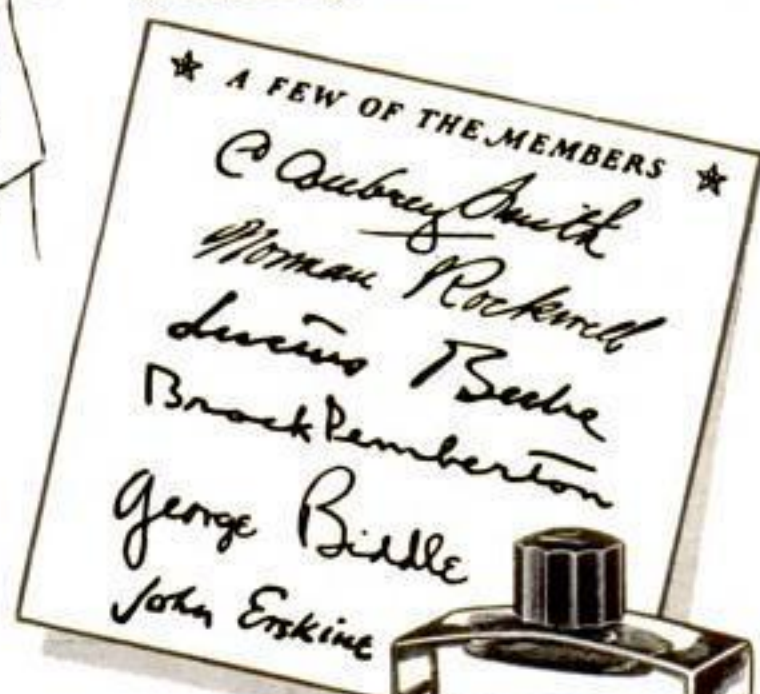 A FEW OF THE MEMBERS
C Aubrey Smith
Norman Rockwell
Lucius Beebe
Brock Pemberton
George Biddle
John Erskine